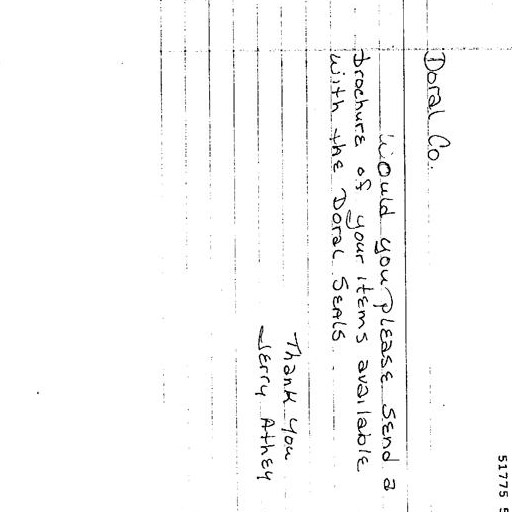 Doral Co.
Would you please send a
brochure of your items available
with the Doral Seals.
Thank you
Jerry Athey
51775 5